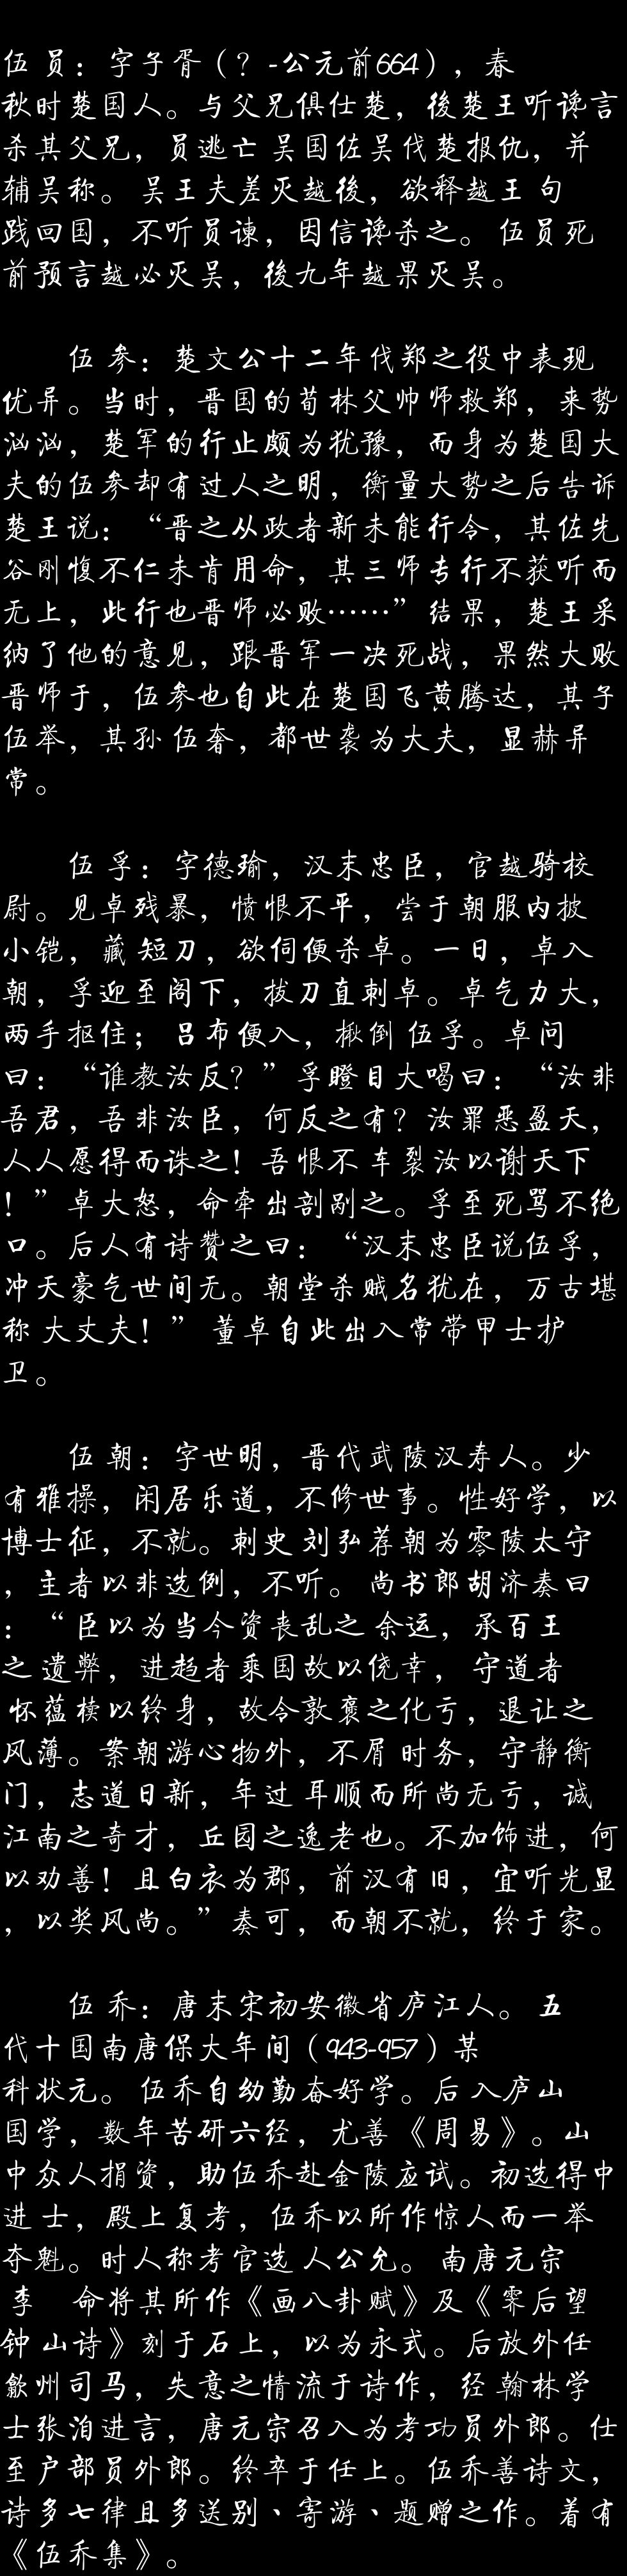 伍 员：字子胥（？-公元前664），春
秋时楚国人。与父兄俱仕楚，後楚王听谗言
杀其父兄，员逃亡 吴国佐吴伐楚报仇，并
辅吴称。 吴王夫差灭越後，欲释越王 句
践回国，不听员谏，因信谗杀之。 伍员死
前预言越必灭吴，後九年越果灭吴。
伍 参：楚文公十二年伐郑之役中表现
优异。当时，晋国的荀林父帅师救郑，来势
汹汹，楚军的行止颇为犹豫，而身为楚国大
夫的伍参却有过人之明，衡量大势之后告诉
楚王说：“晋之从政者新未能行令，其佐先
谷刚愎不仁未肯用命，其三师专行不获听而
无上，此行也晋师必败……” 结果，楚王采
纳了他的意见，跟晋军一决死战，果然大败
晋师于，伍参也自此在楚国飞黄腾达，其子
伍举，其孙 伍奢，都世袭为大夫，显赫异
常。
伍 孚：字德瑜，汉末忠臣，官越骑校
尉。见卓残暴，愤恨不平，尝于朝服内披
小铠，藏 短刀，欲伺便杀卓。一日，卓入
朝，孚迎至阁下，拔刀直刺卓。卓气力大，
两手抠住； 吕布便入，揪倒 伍孚。卓问
曰：“谁教汝反？” 孚瞪目大喝曰：“汝非
吾君，吾非汝臣，何反之有？汝罪恶盈天，
人人愿得而诛之！吾恨不 车裂汝以谢天下
！” 卓大怒，命牵出剖剐之。孚至死骂不绝
口。后人有诗赞之曰：“汉末忠臣说伍孚，
冲天豪气世间无。朝堂杀贼名犹在，万古堪
称 大丈夫！” 董卓自此出入常带甲士护
卫。
伍 朝：字世明，晋代武陵汉寿人。少
有雅操，闲居乐道，不修世事。性好学，以
博士征，不就。刺史 刘弘荐朝为零陵太守
，主者以非选例，不听。 尚书郎胡济奏曰
：“ 臣以为当今资丧乱之 余运，承百王
之 遗弊，进趋者乘国故以侥幸， 守道者
怀蕴椟以终身，故令敦褒之化亏，退让之
风薄。案朝游心物外，不屑 时务，守静衡
门，志道日新，年过 耳顺而所尚无亏，诚
江南之奇才，丘园之逸老也。不加饰进，何
以劝善！且白衣为郡，前汉有旧，宜听光显
，以奖风尚。” 奏可，而朝不就，终于家。
伍 乔：唐末宋初安徽省庐江人。 五
代十国南唐保大年间（943-957）某
科状元。 伍乔自幼勤奋好学。后 入庐山
国学，数年苦研六经，尤善《周易》。山
中众人捐资，助伍乔赴金陵应试。初选得中
进 士，殿上复考，伍乔以所作惊人而一举
夺魁。时人称考官选 人公允。 南唐元宗
李 命将其所作《画八卦赋》及《霁后望
钟 山诗》刻于石上，以为永式。后放外任
歙州司马，失意之情流于诗作，经 翰林学
士张洎进言，唐元宗召入为考功员外郎。仕
至户部员外郎。终卒于任上。伍乔善诗文，
诗多七律且多送别、寄游、题赠之作。着有
《伍乔集》。